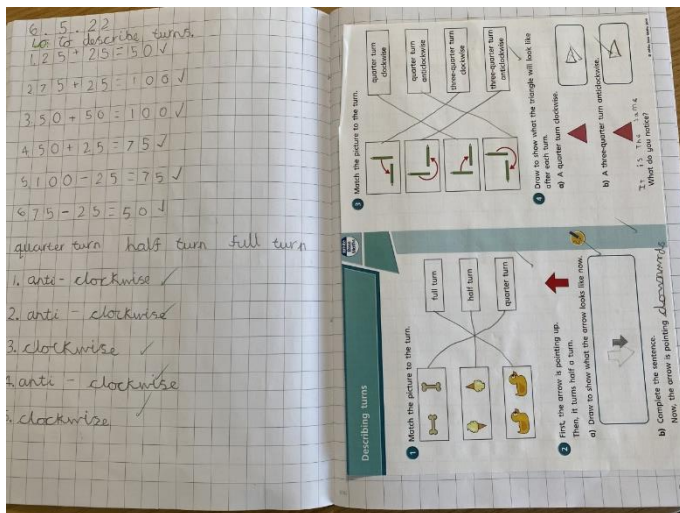 6.5.22
LO: to describe turns.
1, 25 + 25 = 50 ✓
2 75 + 25 = 100 ✓
3, 50 + 50 = 100 ✓
4 50 + 25 = 75 ✓
5, 100 - 25 = 75 ✓
6 75 - 25 = 50 ✓
quarter turn half turn full turn
1. anti - clockwise ✓
2. anti - clockwise ✓
3. clockwise ✓
4. anti - clockwise
5. clockwise ✓
Describing turns
1 Match the picture to the turn.
full turn
half turn
quarter turn
2 First, the arrow is pointing up.
Then, it turns half a turn.
a) Draw to show what the arrow looks like now.
b) Complete the sentence.
Now, the arrow is pointing downwards
3 Match the picture to the turn.
quarter turn
clockwise
quarter turn
anticlockwise
three-quarter turn
clockwise
three-quarter turn
anticlockwise
4 Draw to show what the triangle will look like
after each turn.
a) A quarter turn clockwise.
b) A three-quarter turn anticlockwise.
It is the same
What do you notice?